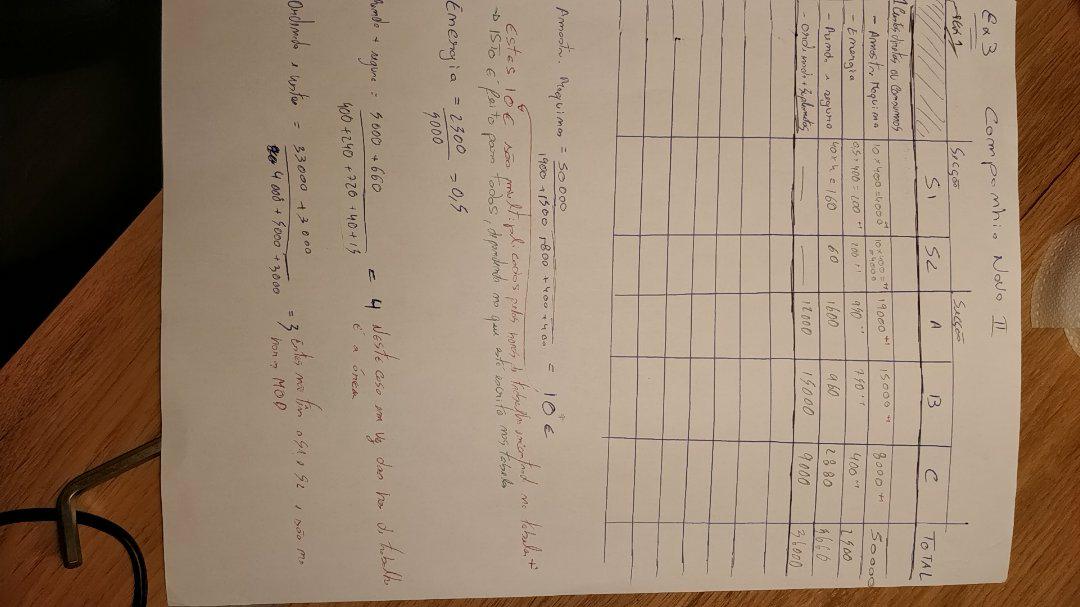 Ex 3 Companhia Novo II
Secção Secção
S1 S2 A B C TOTAL
1 Custos diretos ou comummos
- Amostr. Maquima 10 x 400 = 4000 +1 10 x 400 = 4000 +1 19000 +1 15000 +1 8000 +1 50000
- Energia 0,5 x 400 = 200 +1 200 +1 950 +1 750 +1 400 +1 2500
- Renda e seguro 40 x 4 = 160 60 1600 960 2880 5660
- Ordemada + Suplementos — — 12000 15000 9000 36000
Amostr. Maquimas = 50000 / 1900 + 1500 + 800 + 400 + 400 = 10 €
Estes 10 € são multiplicados pelas horas de trabalho na tabela +
→ ISTO É feito para todos, dependendo no que está escrito nas tabela
Energia = 2500 / 5000 = 0,5
Renda + seguro = 5000 + 660 / 400 + 240 + 720 + 40 + 15 = 4 Neste caso em vez das hor de trabalho
é a área
Ordemada = 33000 + 3000 / 4000 + 5000 + 3000 = 3 Estes não têm o S1 e S2 e são na
hora MOD